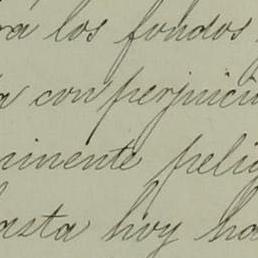 ra los fondos
a con perjuicio
minente pelig
hasta hoy ha